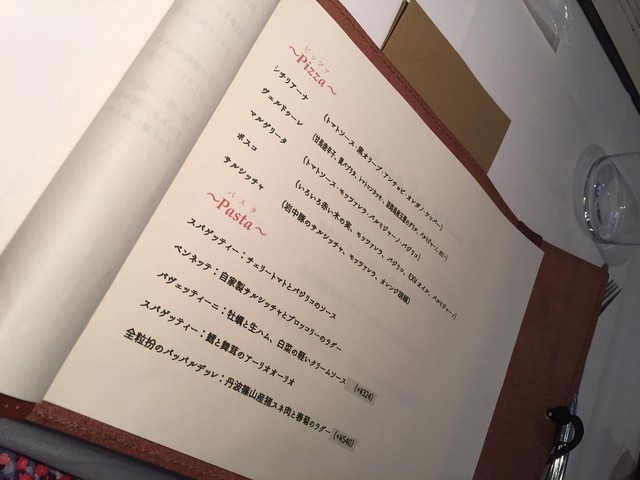 ピッツァ
～Pizza～
シチリアーナ (トマトソース・黒オリーブ・アンチョビ・オレガノ・ケッパー)
ヴェルドゥーレ
マルゲリータ (トマトソース・モッツァレラ・パルミジャーノ・バジリコ)
ボスコ (いろいろ赤い木の実、モッツァレラ、バジリコ、EXVオイル、パルミジャーノ)
サルシッチャ (岩中豚のサルシッチャ、モッツァレラ、オレンジ胡椒)
パスタ
～Pasta～
スパゲッティー：チェリートマトとバジリコのソース
ペンネッテ：自家製サルシッチャとブロッコリーのラグー
バヴェッティーニ：牡蠣と生ハム、白菜の軽いクリームソース (+¥324)
スパゲッティー：鱈と舞茸のアーリオオーリオ
全粒粉のパッパルデッレ：丹波篠山産猪スネ肉と春菊のラグー (+¥540)